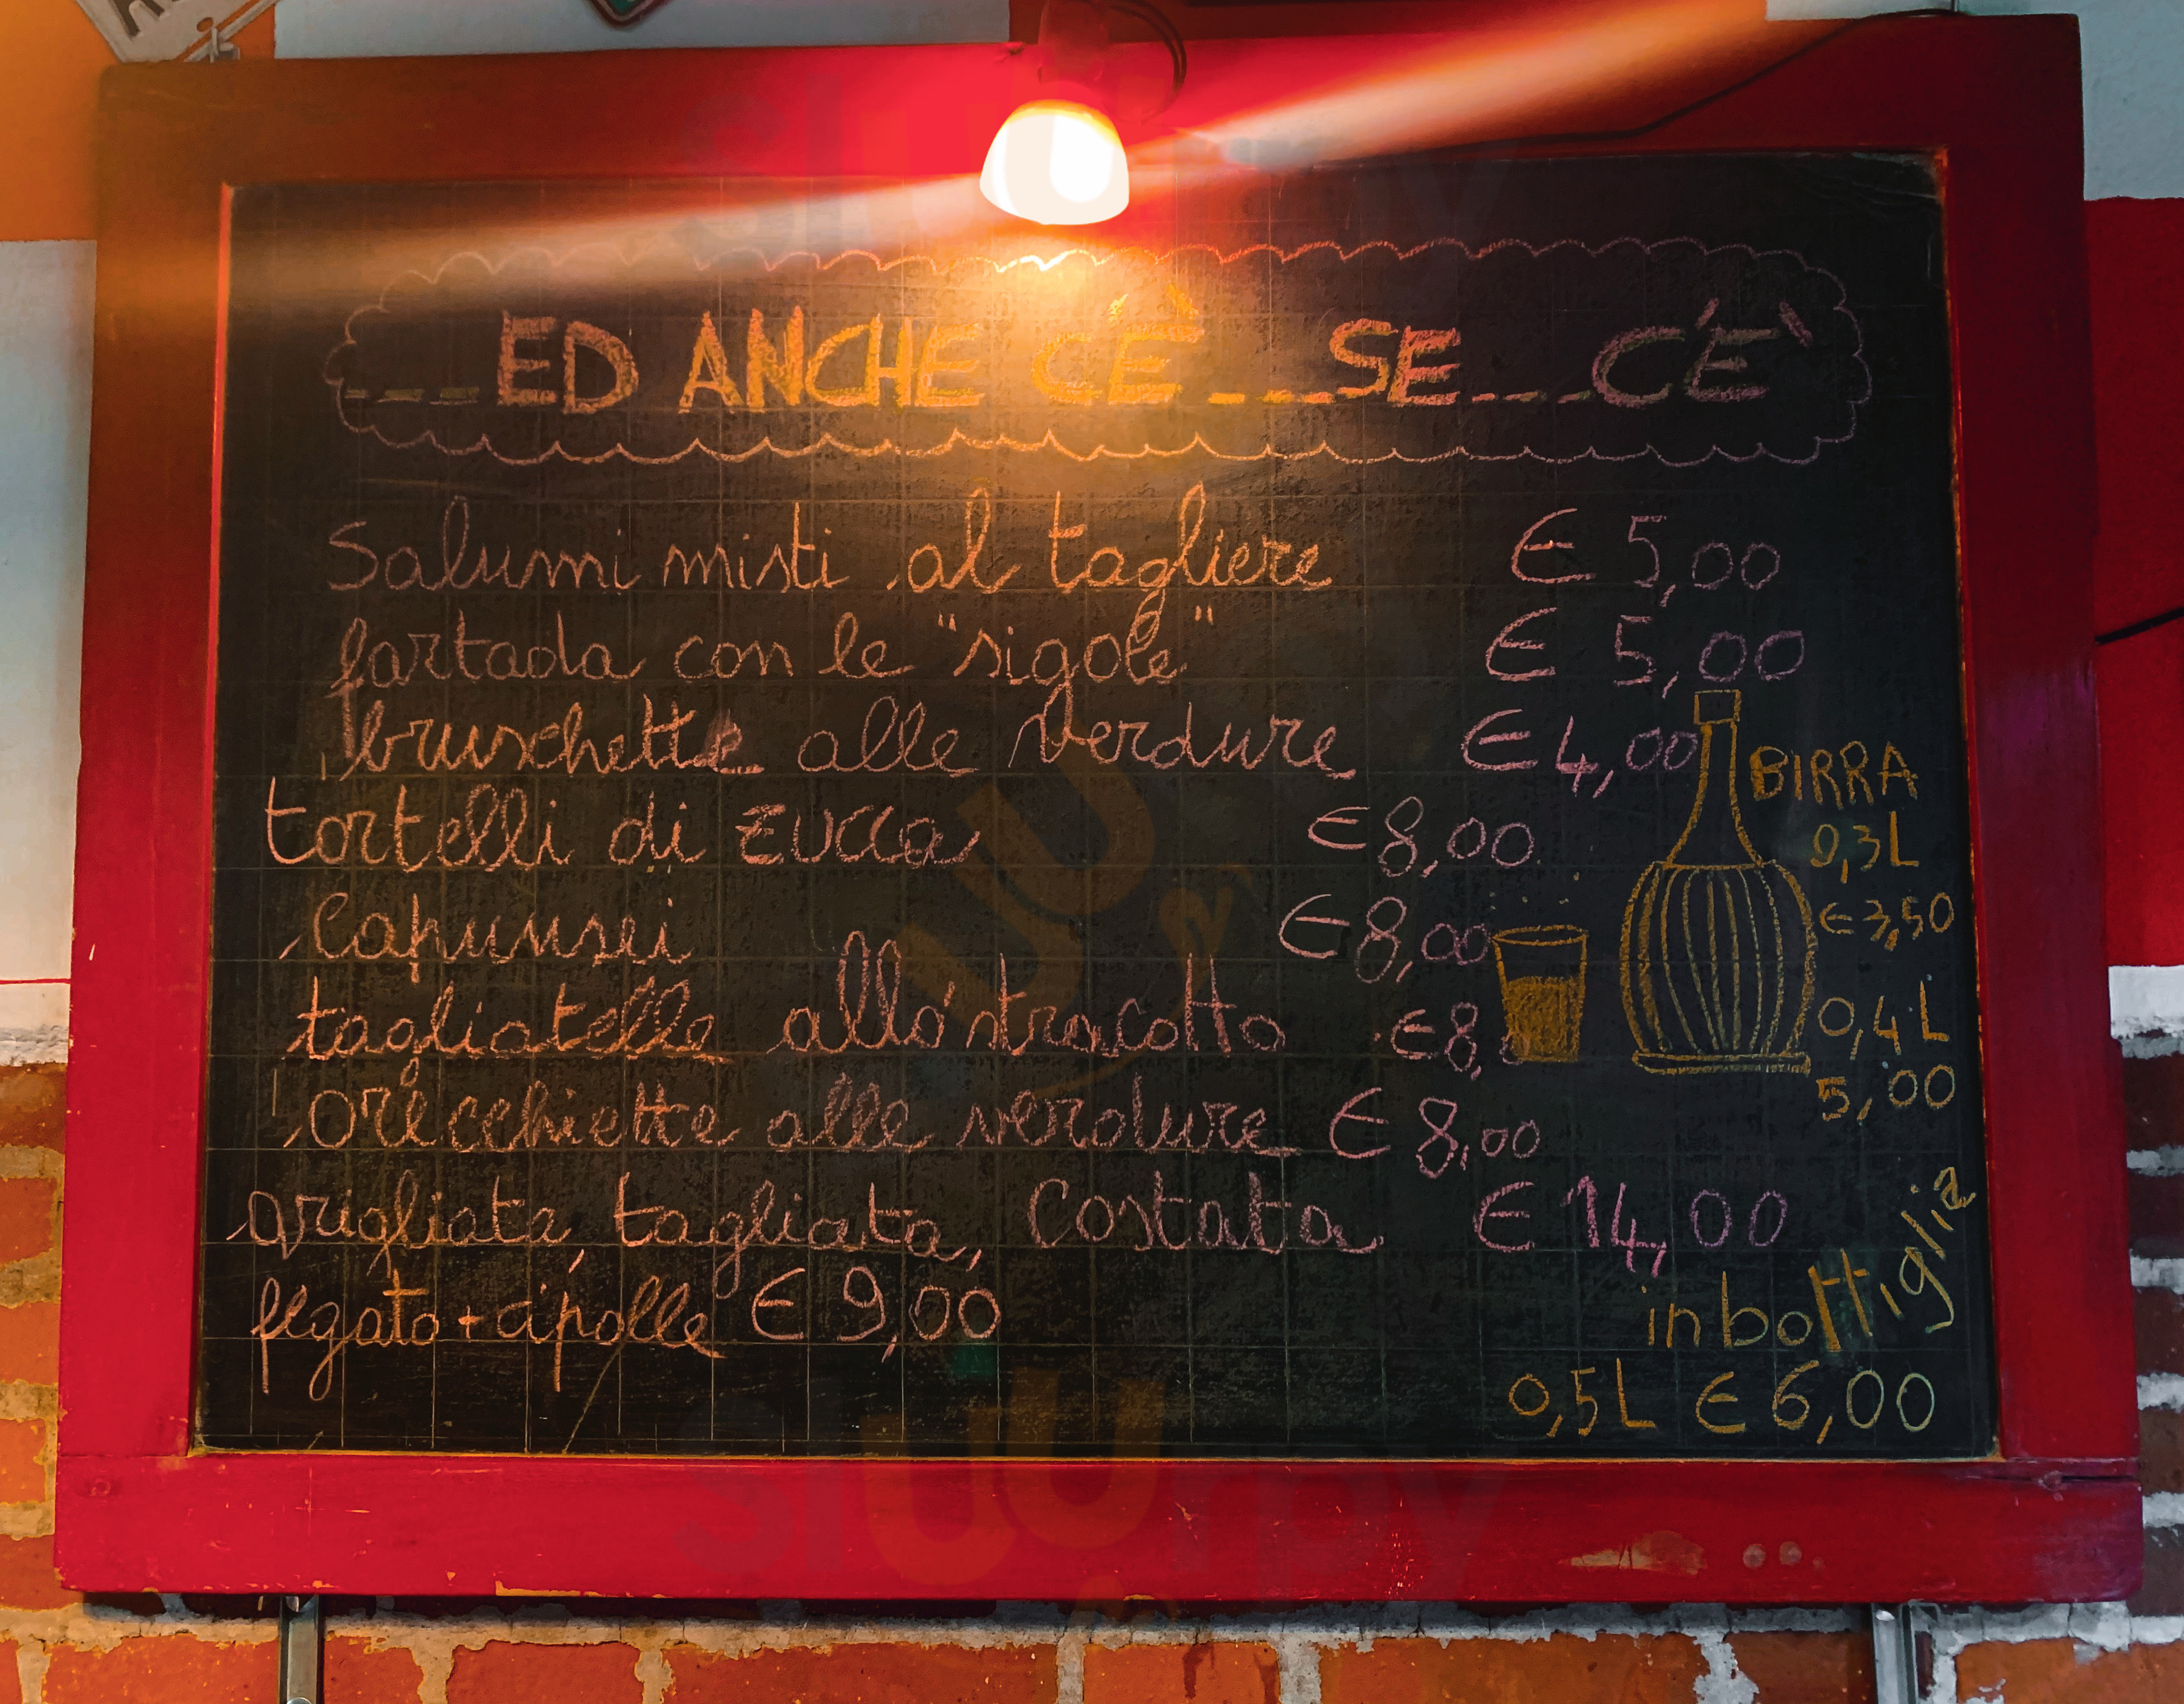 ___ED ANCHE C'È__SE___C'È
Salumi misti al tagliere € 5,00
fartada con le "sigole" € 5,00
bruschette alle verdure € 4,00
tortelli di zucca € 8,00
Capunsei € 8,00
tagliatelle allo stracotto € 8,
orecchiette alle verdure € 8,00
grigliata, tagliata, Costata € 14,00
fegato + cipolle € 9,00
BIRRA
0,3 L
€ 3,50
0,4 L
5,00
in bottiglia
0,5 L € 6,00
sluurpy
sluurpy